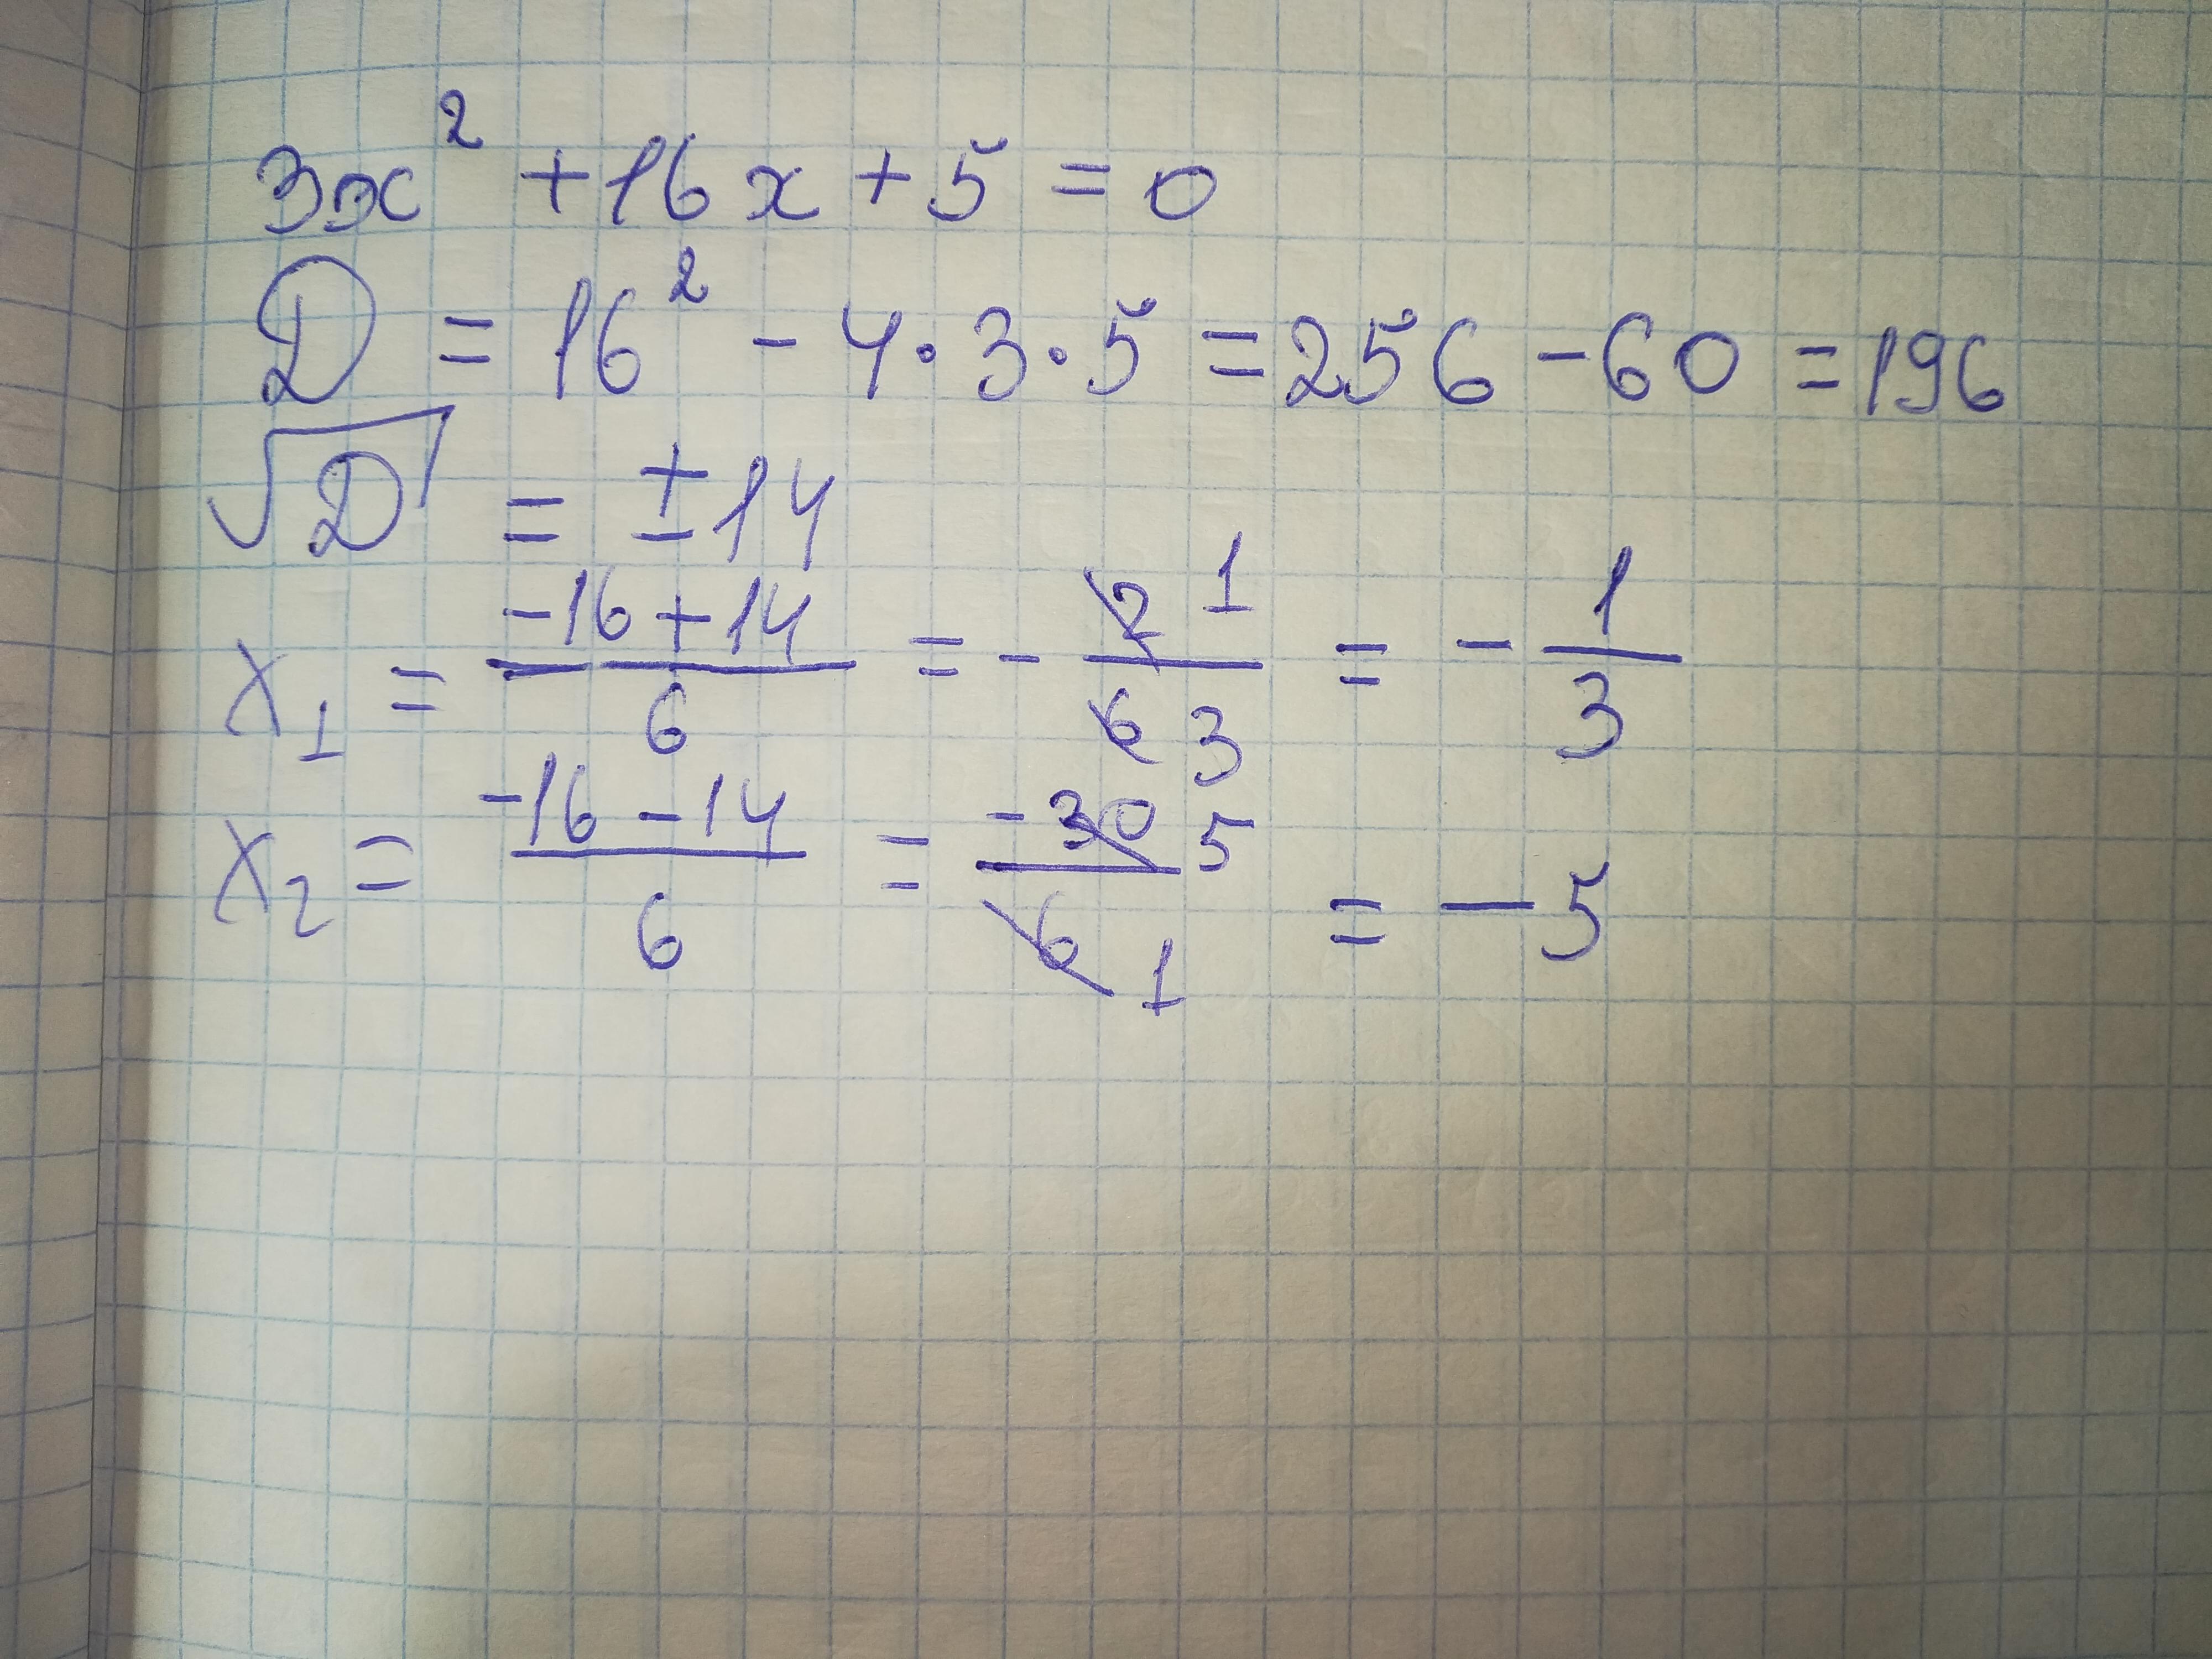 3x² + 16x + 5 = 0
D = 16² - 4·3·5 = 256 - 60 = 196
√D = ±14
x₁ = (-16 + 14)/6 = - (2 1)/(6 3) = - 1/3
x₂ = (-16 - 14)/6 = (-30 5)/(6 1) = -5